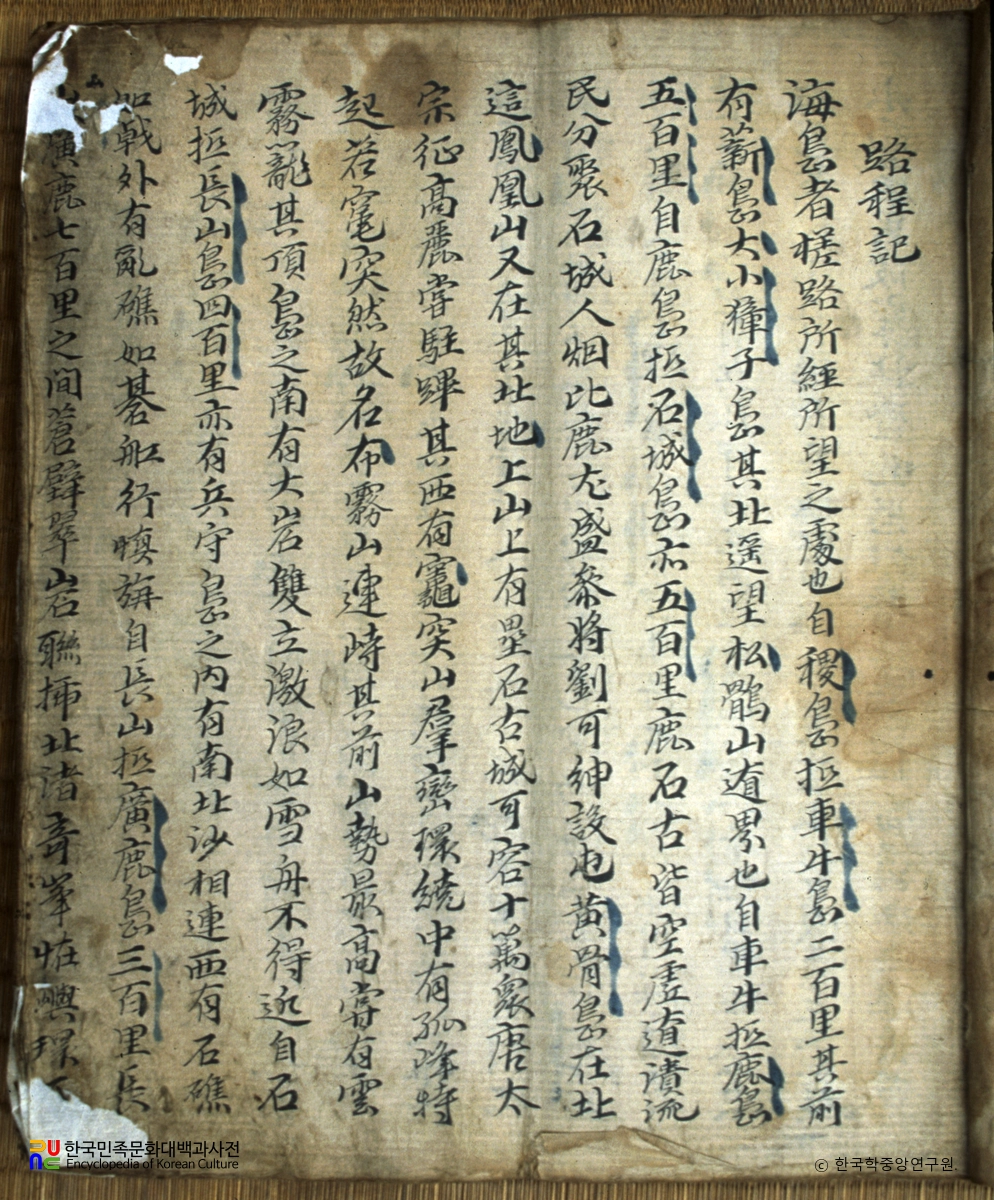 路程記
海島者槎路所經所望之處也自稷島抵車牛島二百里其前
有薪島大小獐子島其北遥望松鶻山遼界也自車牛抵鹿島
五百里自鹿島抵石城島亦五百里鹿石古皆空虛遼潰流
民分聚石城人烟比鹿尤盛叅將劉可紳設也黄骨島在北
這鳳凰山又在其北地上山上有壘石古城可容十萬衆唐太
宗征高麗嘗駐蹕其西有竈突山羣巒環繞中有孤峰特
起若竃突然故名布霧山連峙其前山勢最高常有雲
霧籠其頂島之南有大岩雙立激浪如雪舟不得近自石
城抵長山島四百里亦有兵守島之內有南北沙相連西有石礁
如戟外有亂礁如碁舡行愼旃自長山抵廣鹿島三百里長
廣鹿七百里之間蒼壁翠岩聯挿北渚奇峯恠
한국민족문화대백과사전
Encyclopedia of Korean Culture
ⓒ 한국학중앙연구원.